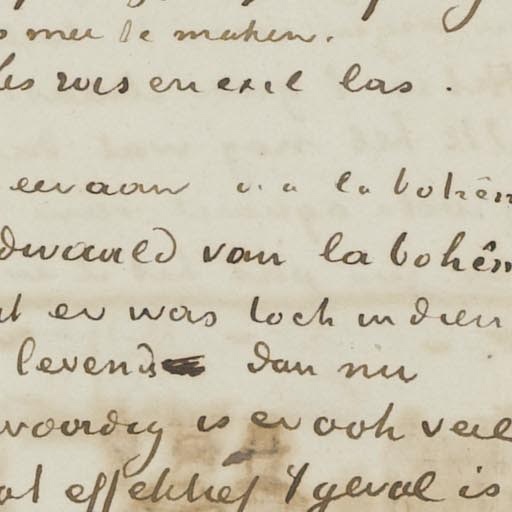 mee te maken.
las vers en exil las.
eer aan v. a la bohêm
dwaald van la bohêm
at er was toch indien
levends dan nu
woordig is er ook veel
at effektief 't geval is